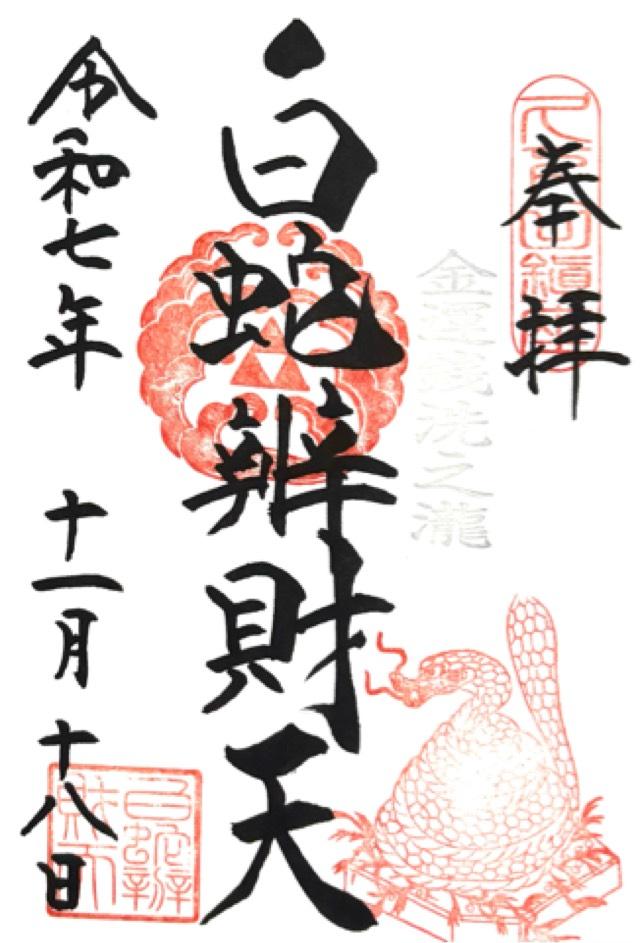 奉拝
金運銭洗之瀧
白蛇辨財天
令和七年 十一月 十八日
白蛇辨財天